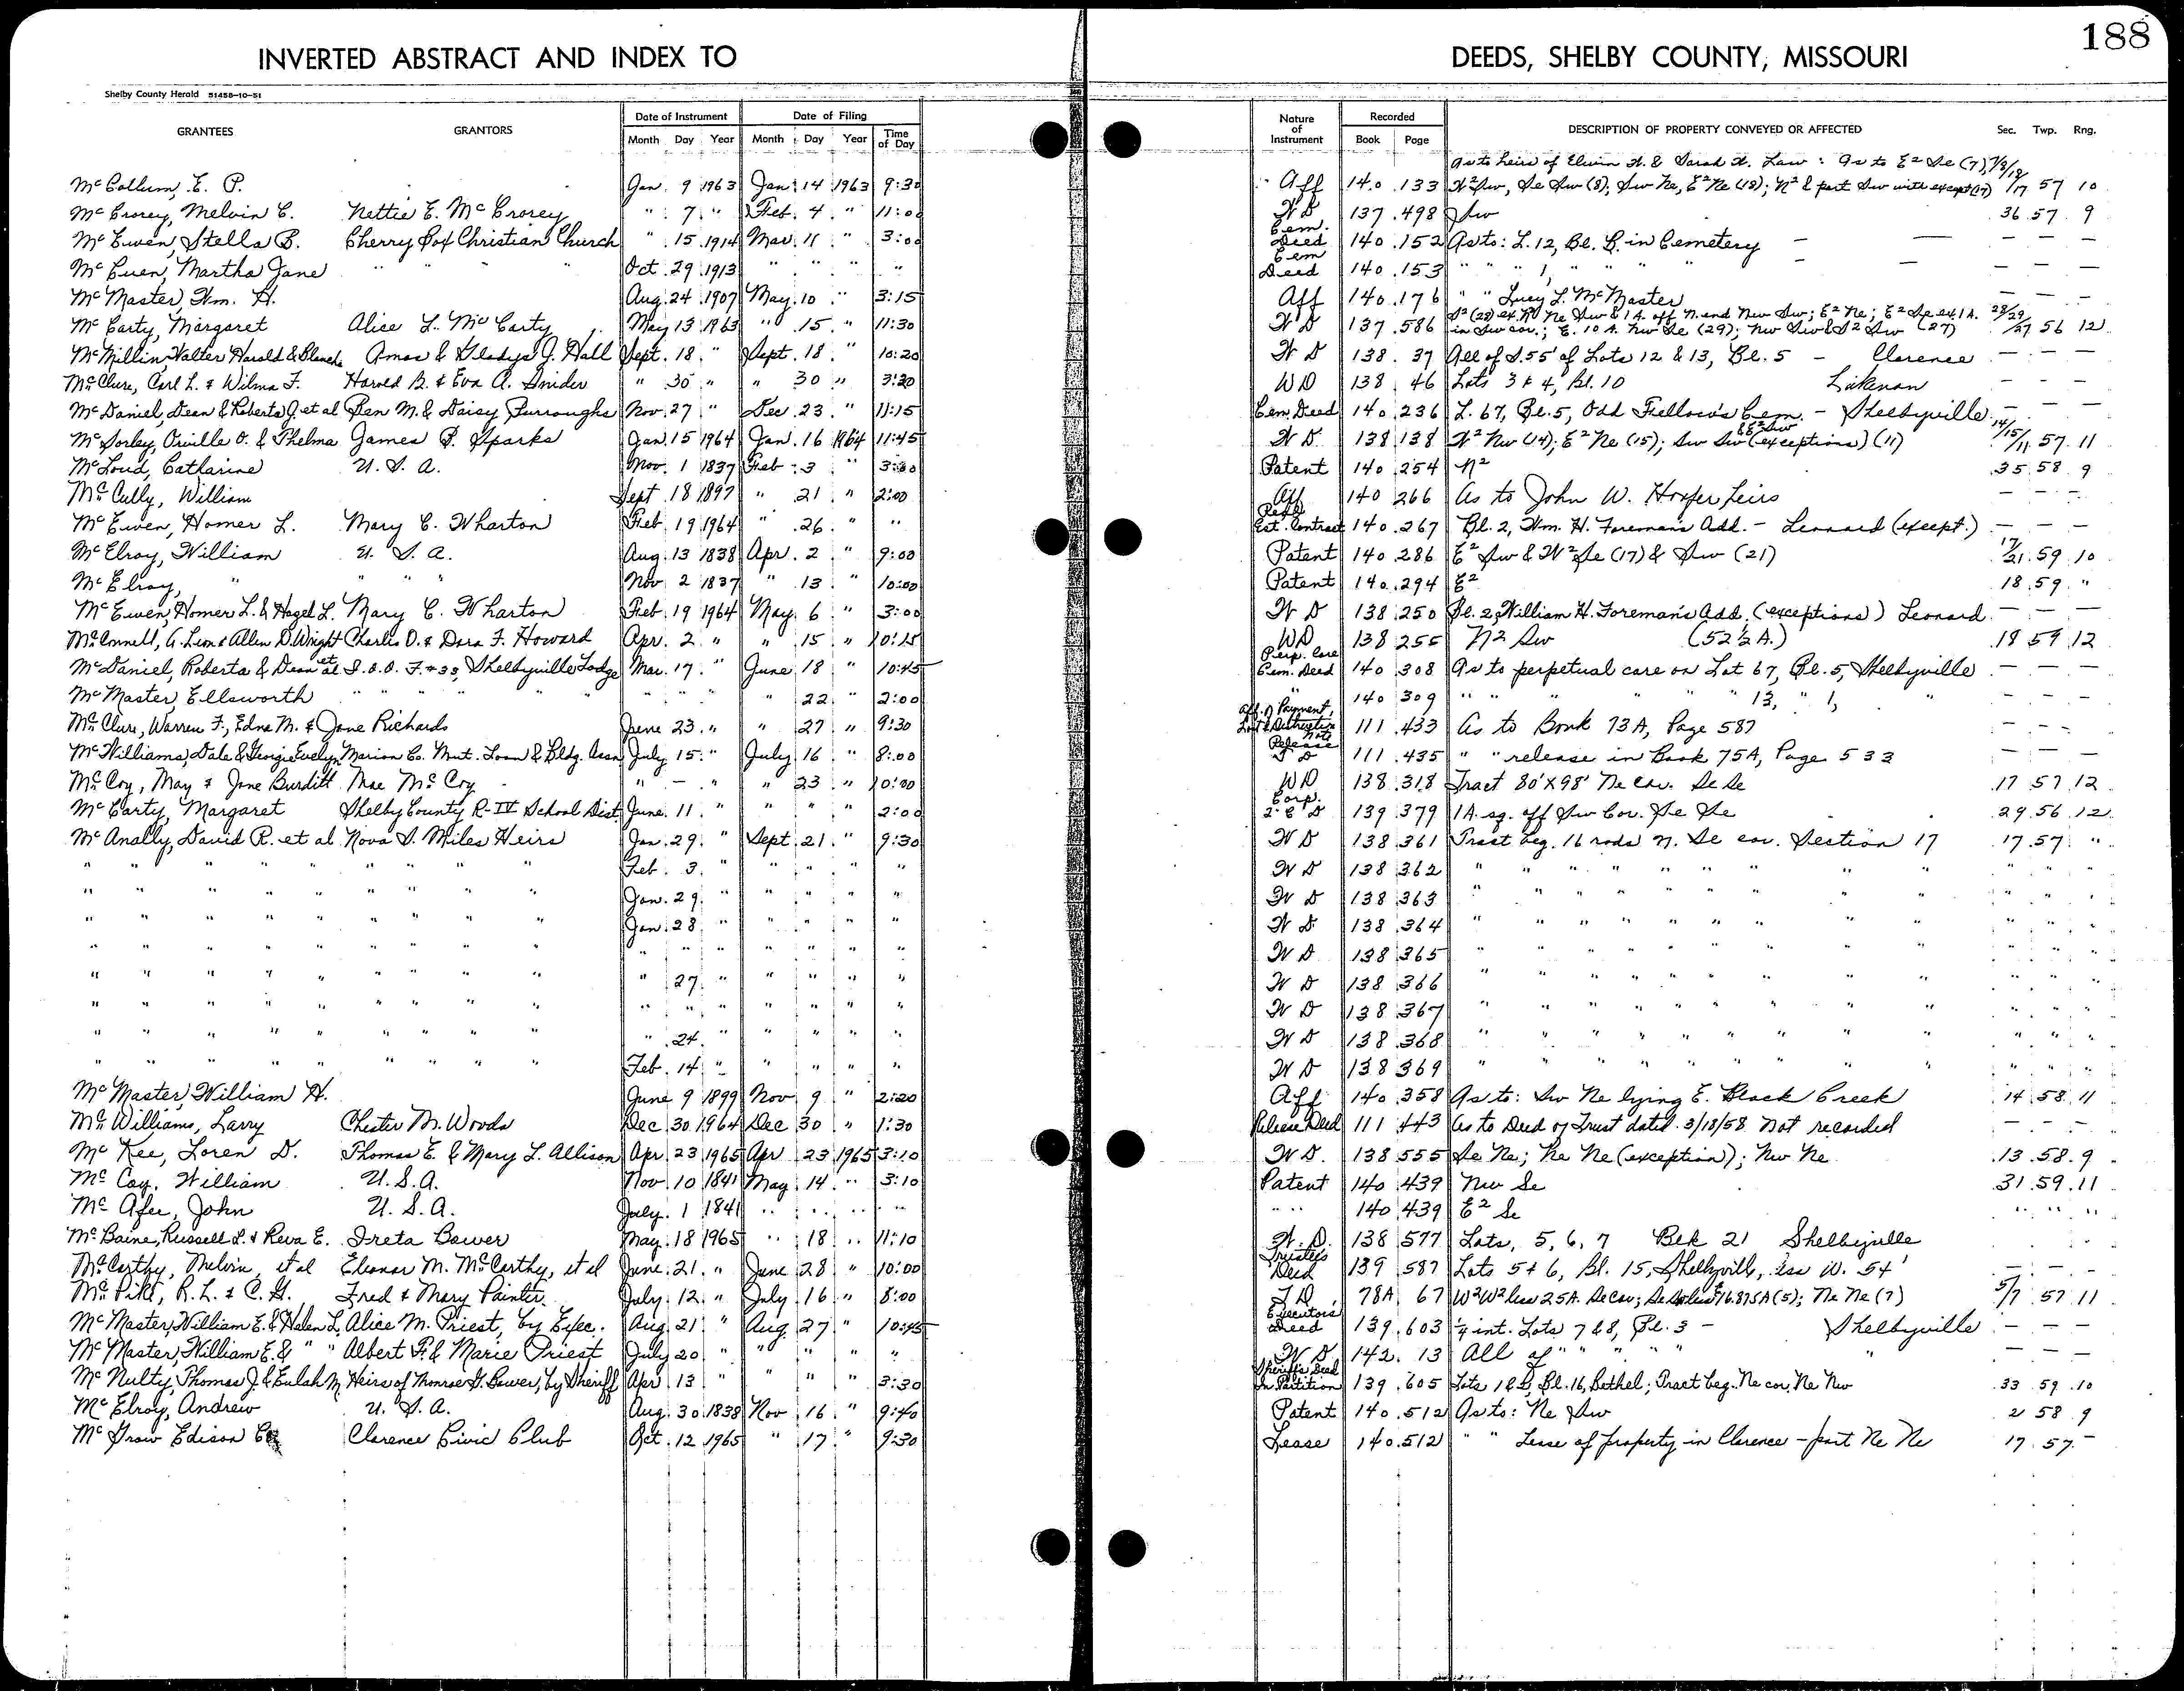 188
INVERTED ABSTRACT AND INDEX TO DEEDS, SHELBY COUNTY, MISSOURI
Shelby County Herald 51458-10-51
GRANTEES GRANTORS Date of Instrument Date of Filing Nature of Instrument Recorded DESCRIPTION OF PROPERTY CONVEYED OR AFFECTED Sec. Twp. Rng.
Month Day Year Month Day Year Time of Day Book Page
As to heirs of Elwin W. & Sarah W. Law: As to E² Se (7), 7/8/18
McCollum, E. P. Jan. 9 1963 Jan. 14 1963 9:30 Aff 140 133 W² Sw, Se Sw (8); Sw Ne, E² Ne (18); N² & part Sw with except (17) /17 57 10
McCrorey, Melvin C. Nettie E. McCrorey " 7 " Feb. 4 " 11:00 W D 137 498 Sw 36 57 9
McEwen, Stella B. Cherry Box Christian Church " 15 1914 Mar. 11 " 3:00 Cem. Deed 140 152 As to: L. 12, Bl. B. in Cemetery — — — — —
McCuen, Martha Jane " " " Oct. 29 1913 " " " " Cem Deed 140 153 " " " 1, " " " " — — — — —
McMaster, Wm. H. Aug. 24 1907 May 10 " 3:15 Aff 140 176 " " Lucy L. McMaster — — —
McCarty, Margaret Alice L. McCarty May 13 1963 " 15 " 11:30 W D 137 586 S² (28) ex. Ne Sw & 1 A. off N. end Nw Sw; E² Ne; E² Se ex. 1 A. 28/29
in Sw cor.; E. 10 A. Nw Se (29); Nw Sw & S² Sw (27) /27 56 12
McMillin, Walter Harold & Blanche Amos & Gladys J. Hall Sept. 18 " Sept. 18 " 10:20 W D 138 37 All of S. 55' of Lots 12 & 13, Bl. 5 – Clarence — — —
McClure, Carl L. & Wilma F. Harold B. & Eva A. Snider " 30 " " 30 " 3:20 WD 138 46 Lots 3 & 4, Bl. 10 Lakenan — — —
McDaniel, Dean & Roberta J. et al Ben M. & Daisy Burroughs Nov. 27 " Dec. 23 " 11:15 Cem. Deed 140 236 L. 67, Bl. 5, Odd Fellow's Cem. – Shelbyville — — —
McSorley, Orville O. & Thelma James P. Sparks Jan. 15 1964 Jan. 16 1964 11:45 W D. 138 138 W² Nw (14); E² Ne (15); Sw Sw & E² Sw (exceptions) (11) 14/15/11 57 11
McLoud, Catharine U. S. A. Nov. 1 1837 Feb. 3 " 3:30 Patent 140 254 N² 35 58 9
McCully, William Sept 18 1897 " 21 " 2:00 Aff 140 266 As to John W. Heirs — — —
McEwen, Homer L. Mary C. Wharton Feb. 19 1964 " 26 " " Real Est. Contract 140 267 Bl. 2, Wm. H. Foreman's Add. – Leonard (except.) — — —
McElroy, William U. S. A. Aug. 13 1838 Apr. 2 " 9:00 Patent 140 286 E² Sw & W² Se (17) & Sw (21) 17/21 59 10
McElroy, " " " " Nov 2 1837 " 13 " 10:00 Patent 140 294 E² 18 59 "
McEwen, Homer L. & Hazel L. Mary C. Wharton Feb 19 1964 May. 6 " 3:00 W D 138 250 Bl. 2, William H. Foreman's Add. (exceptions) Leonard — — —
McConnell, A. Leon & Allen D. Wright Charles O. & Dora F. Howard Apr. 2 " " 15 " 10:15 WD 138 255 N² Sw (52½ A.) 18 59 12
McDaniel, Roberta & Dean et al I. O. O. F. #33, Shelbyville Lodge Mar. 17 " June 18 " 10:45 Perp. Care Cem. Deed 140 308 As to perpetual care on Lot 67, Bl. 5, Shelbyville — — —
McMaster, Ellsworth " " " " " " " 22 " 2:00 " 140 309 " " " " " 13, " 1, " — — —
McClure, Warren F., Edna M. & Jane Richards June 23 " " 27 " 9:30 Aff. of Payment, Lost & Destruction Note 111 433 As to Book 73A, Page 587 — — —
McWilliams, Dale & Georgie Evelyn Marion Co. Mut. Loan & Bldg. Assn July 15 " July 16 " 8:00 Release T D 111 435 " " release in Book 75A, Page 533 — — —
McCoy, May & Jane Burditt Mae McCoy " — " " 23 " 10:00 WD 138 318 Tract 80' X 98' Ne Cor. Se Se 17 57 12
McCarty, Margaret Shelby County R-IV School Dist June 11 " " " " 2:00 Corp. Q C D 139 379 1 A. sq. off Sw Cor. Se Se 29 56 12
McAnally, David R. et al Nova S. Miles Heirs Jan. 29 " Sept. 21 " 9:30 W D 138 361 Tract beg. 16 rods N. Se cor. Section 17 17 57 "
" " " " " " " " " Feb. 3 " " " " " W D 138 362 " " " " " " " " " " " "
" " " " " " " " " Jan. 29 " " " " " W D 138 363 " " " " " " " " " " " "
" " " " " " " " " Jan. 28 " " " " " W D 138 364 " " " " " " " " " " " "
" " " " " " " " " " " " " " " " W D 138 365 " " " " " " " " " " " "
" " " " " " " " " " 27 " " " " " W D 138 366 " " " " " " " " " " " "
" " " " " " " " " " " " " " " " W D 138 367 " " " " " " " " " " " "
" " " " " " " " " " 24 " " " " " W D 138 368 " " " " " " " " " " " "
" " " " " " " " " Feb. 14 " " " " " W D 138 369 " " " " " " " " " " " "
McMaster, William H. June 9 1899 Nov 9 " 2:20 Aff 140 358 As to: Sw Ne lying E. Black Creek 14 58 11
McWilliams, Larry Chester M. Woods Dec 30 1964 Dec 30 " 1:30 Release Deed 111 443 As to Deed of Trust dated 3/18/58 Not recorded — — —
McKee, Loren D. Thomas E. & Mary L. Allison Apr 23 1965 Apr 23 1965 3:10 W D. 138 555 Se Ne; Ne Ne (exception); Nw Ne 13 58 9
McCoy, William U. S. A. Nov 10 1841 May 14 " 3:10 Patent 140 439 Nw Se 31 59 11
McAfee, John U. S. A. July 1 1841 " " " " " 140 439 E² Se " " "
McBaine, Russell L. & Reva E. Ireta Bower May 18 1965 " 18 " 11:10 W. D. 138 577 Lots, 5, 6, 7 Blk 21 Shelbyville — — —
McCarthy, Melvin, et al Eleanor M. McCarthy, et al June 21 " June 28 " 10:00 Trustee's Deed 139 587 Lots 5 & 6, Bl. 15, Shelbyville, less W. 54' — — —
McPike, R. L. & C. H. Fred & Mary Painter July 12 " July 16 " 8:00 T D 78A 67 W² W² less 25A. Se cor; Se less 16.875A (5); Ne Ne (7) 5/7 57 11
McMaster, William E. & Helen L. Alice M. Priest, by Exec. Aug 21 " Aug 27 " 10:45 Executors Deed 139 603 ¼ int. Lots 7 & 8, Bl. 3 – Shelbyville — — —
McMaster, William E. & " " Albert P. & Marie Priest July 20 " " " " " W D 142 13 All of " " " " " — — —
McNulty, Thomas J. & Eulah M. Heirs of Monroe G. Bower, by Sheriff Apr 13 " " " " 3:30 Sheriff's Deed In Partition 139 605 Lots 1 & 2, Bl. 16, Bethel; Tract beg. Ne cor, Ne Nw 33 59 10
McElroy, Andrew U. S. A. Aug. 30 1838 Nov 16 " 9:40 Patent 140 512 As to: Ne Sw 2 58 9
McGrow Edison Clarence Civic Club Oct. 12 1965 " 17 " 9:30 Lease 140 512 " " Lease of property in Clarence – part Ne Ne 17 57 –